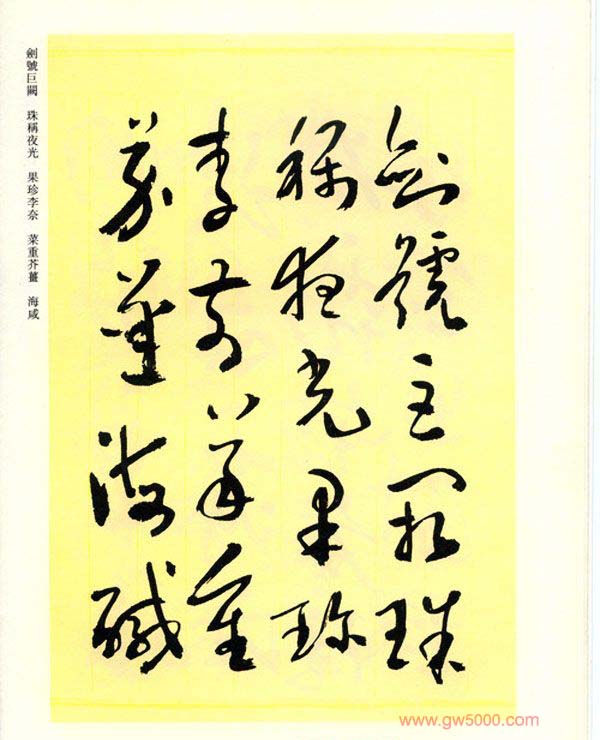 劍號巨闕珠
稱夜光果珍
李柰菜重
芥薑海鹹
劍號巨闕　珠稱夜光　果珍李奈　菜重芥薑　海咸
www.gw5000.com